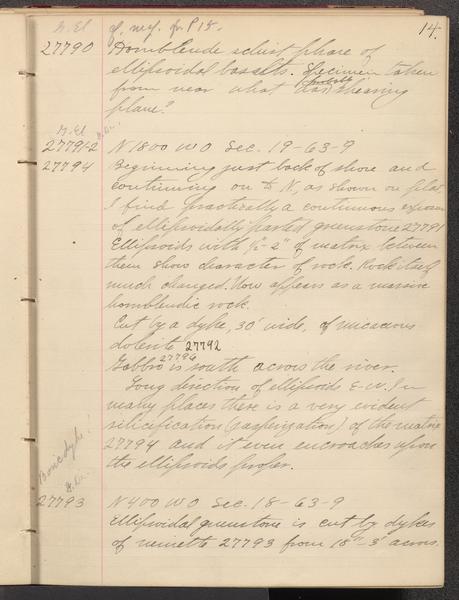 14.
27790 Hornblende schist phase of
ellipsoidal basalts. Specimen taken
from near what was probable shearing
plane?
27791-2 N 1800 W 0 Sec. 19-63-9
27794 Beginning just back of shore and
continuing on to N, as shown on plat
I find practically a continuous exposure
of ellipsoidally parted greenstone 27791
Ellipsoids with ½-2" of matrix between
them show character of rock. Rock itself
much changed. Now appears as a massive
hornblendic rock.
Cut by a dyke, 30' wide, of micaceous
dolerite 27792
Gabbro 27796 is south across the river.
Long direction of ellipsoids E-W. In
many places there is a very evident
silicification (jasperization) of the matrix
27794 and it even encroaches upon
the ellipsoids proper.
Basic dyke?
27793 N 400 W 0 Sec. 18-63-9
Ellipsoidal greenstone is cut by dykes
of minette 27793 from 18"-3' across.